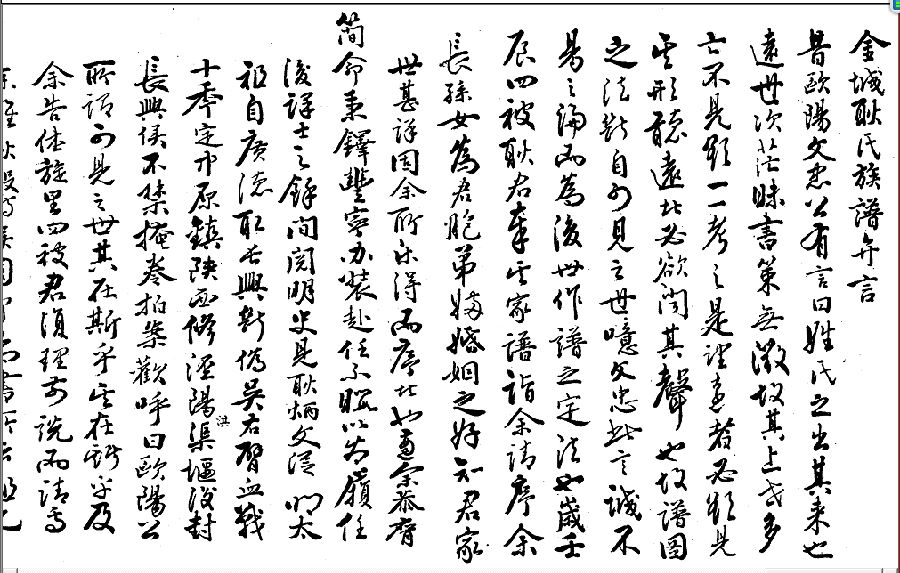 金城耿氏族譜弁言
昔歐陽文忠公有言曰姓氏之出其來也
遠世次茫昧書策無徵故其上世多
亡不見欲一考之是遠者必欲見
其形聽遠者必欲聞其聲也故譜圖
之法斷自可見之世噫文忠此言誠不
易之論而為後世作譜之定法也歲壬
辰四被耿君奉其家譜詣余請序余
長孫女為君胞弟婦婚姻之好知君家
世甚詳固余所樂得而序者也適余恭膺
簡命秉鐸豐寧办裝赴任不暇以為任
後士之餘间閱明史見耿炳文從太
祖自廣德取长興斬偽吳右臂血戰
十年定中原鎮陝西修涇陽洪渠堰後封
長興侯不禁掩卷拍案歡呼曰歐陽公
所謂可見之世其在斯乎其在斯乎及
余告休旋里四被君復理前說而請焉